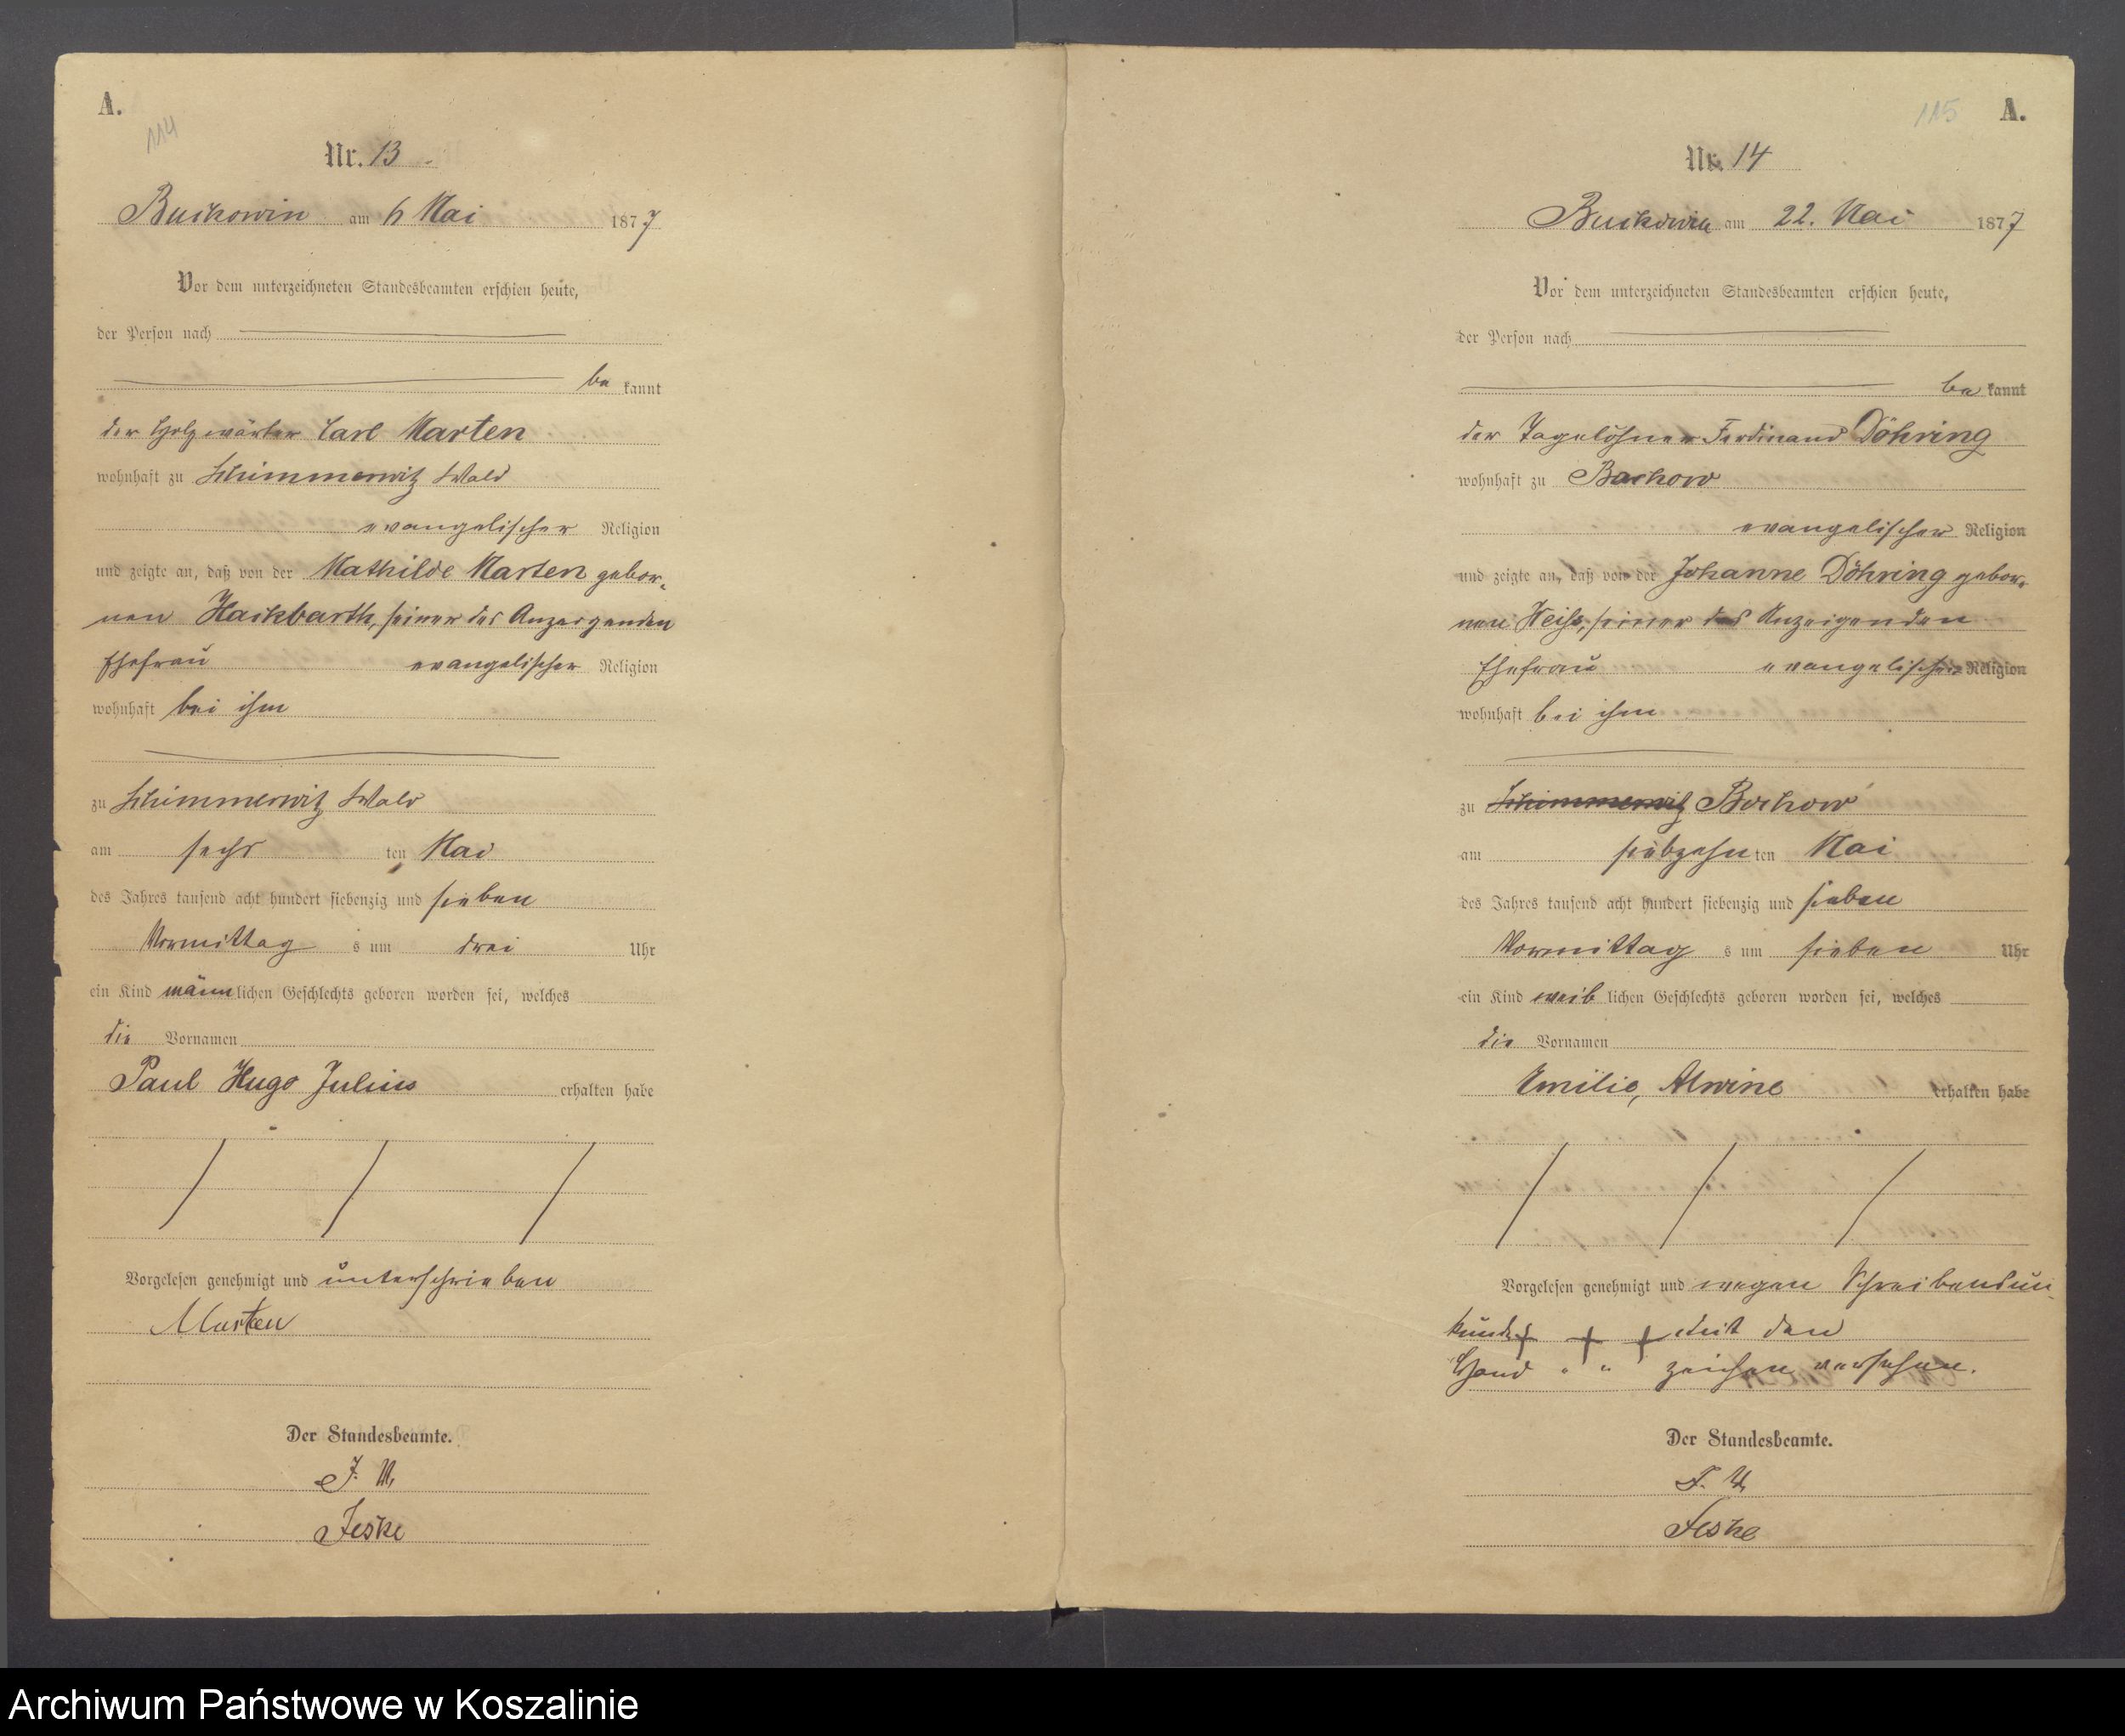 A.
114
Nr. 13
Buckowin am 6 Mai 1877
Vor dem unterzeichneten Standesbeamten erschien heute,
der Person nach
be kannt
der Holzwärter Carl Marten
wohnhaft zu Schimmerwitz Wald
evangelischer Religion
und zeigte an, daß von der Mathilde Marten gebor-
nen Hackbarth, seiner des Anzeigenden
Ehefrau evangelischer Religion
wohnhaft bei ihm
zu Schimmerwitz Wald
am sechs ten Mai
des Jahres tausend acht hundert siebenzig und sieben
Vormittag s um drei Uhr
ein Kind männlichen Geschlechts geboren worden sei, welches
die Vornamen
Paul Hugo Julius erhalten habe
Vorgelesen genehmigt und unterschrieben
Marten
Der Standesbeamte.
J. V.
Jeske
115 A.
Nr. 14
Buckowin am 22. Mai 1877
Vor dem unterzeichneten Standesbeamten erschien heute,
der Person nach
be kannt
der Tagelöhner Ferdinand Döhring
wohnhaft zu Bochow
evangelischer Religion
und zeigte an, daß von der Johanne Döhring gebor-
nen Weiß, seiner des Anzeigenden
Ehefrau evangelischer Religion
wohnhaft bei ihm
zu Schimmerwitz Bochow
am siebzehn ten Mai
des Jahres tausend acht hundert siebenzig und sieben
Vormittag s um sieben Uhr
ein Kind weib lichen Geschlechts geboren worden sei, welches
die Vornamen
Emilie, Alwine erhalten habe
Vorgelesen genehmigt und wegen Schreibensun-
kunde + + + mit den
Hand " " zeichen versehen.
Der Standesbeamte.
J. V.
Jeske
Archiwum Państwowe w Koszalinie